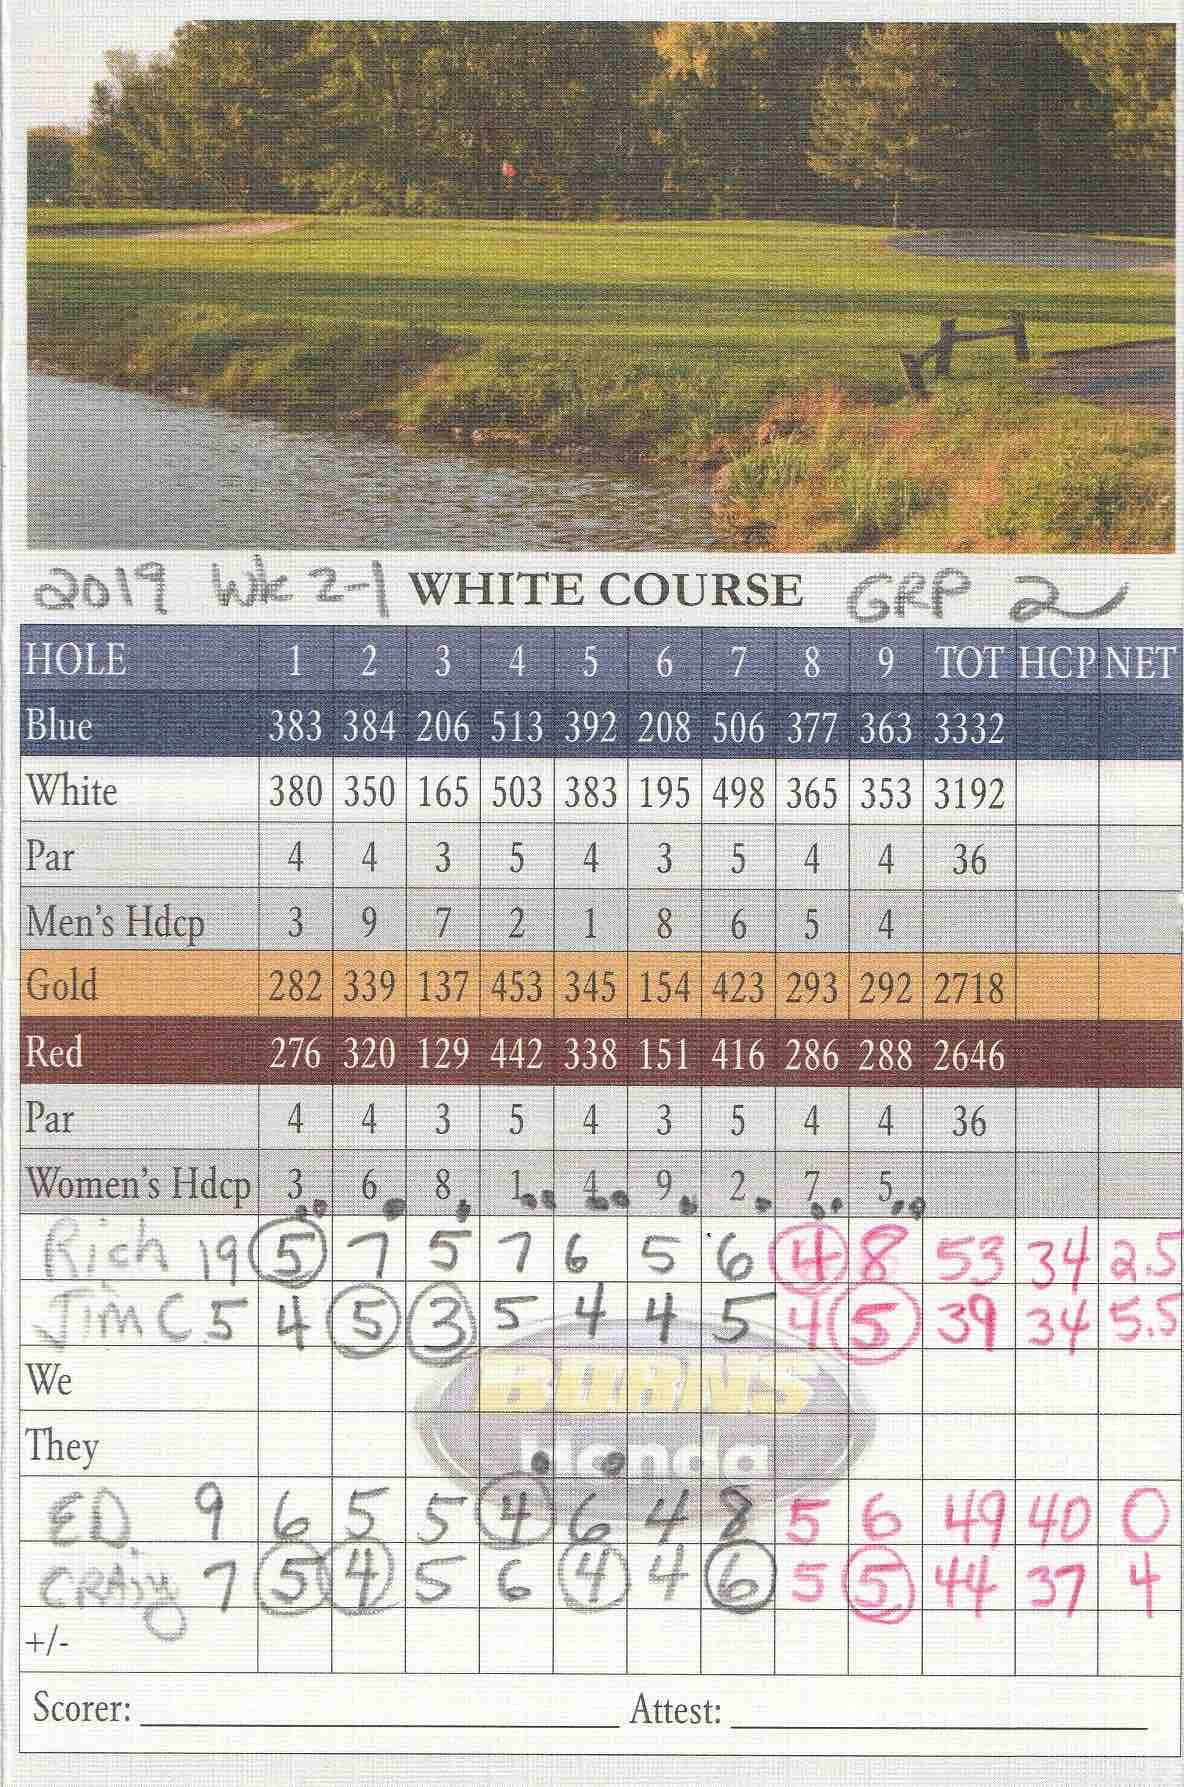 2019 Wk 2-1 WHITE COURSE GRP 2
HOLE 1 2 3 4 5 6 7 8 9 TOT HCP NET
Blue 383 384 206 513 392 208 506 377 363 3332
White 380 350 165 503 383 195 498 365 353 3192
Par 4 4 3 5 4 3 5 4 4 36
Men's Hdcp 3 9 7 2 1 8 6 5 4
Gold 282 339 137 453 345 154 423 293 292 2718
Red 276 320 129 442 338 151 416 286 288 2646
Par 4 4 3 5 4 3 5 4 4 36
Women's Hdcp 3 6 8 1 4 9 2 7 5
Rich 19 5 7 5 7 6 5 6 4 8 53 34 2.5
Jim C 5 4 5 3 5 4 4 5 4 5 39 34 5.5
We
BURNS
They
Honda
ED 9 6 5 5 4 6 4 8 5 6 49 40 0
CRAig 7 5 4 5 6 4 4 6 5 5 44 37 4
+/-
Scorer: Attest: